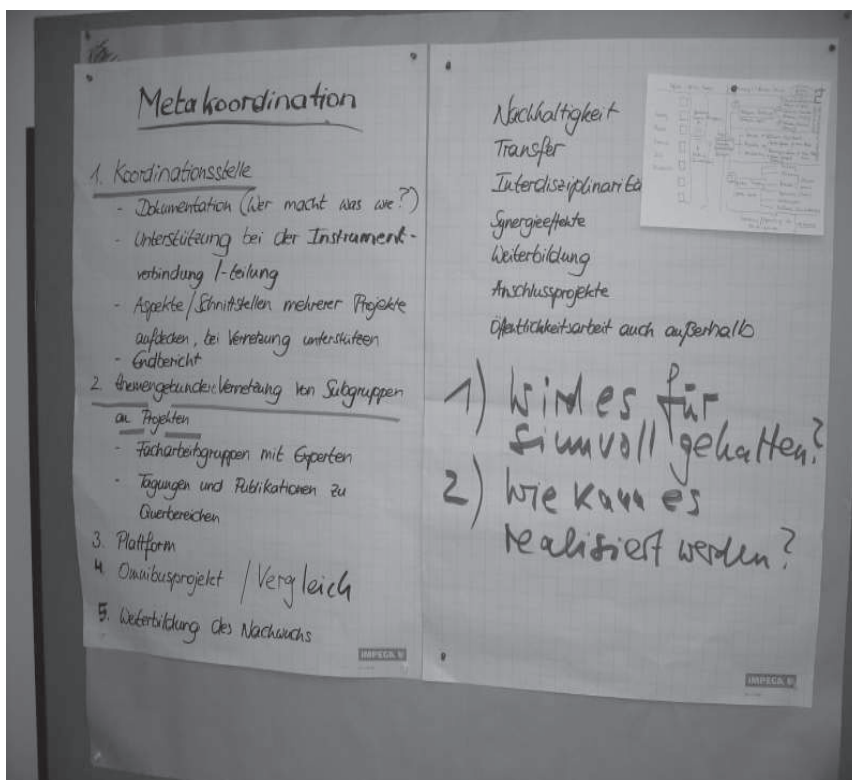 Metakoordination
1. Koordinationsstelle
- Dokumentation (Wer macht was wie?)
- Unterstützung bei der Instrument-
verbindung /-teilung
- Aspekte/Schnittstellen mehrerer Projekte
aufdecken, bei Vernetzung unterstützen
- Endbericht
2. themengebundene Vernetzung von Subgruppen
an Projekten
- Facharbeitsgruppen mit Experten
- Tagungen und Publikationen zu
Querbereichen
3. Plattform
4. Omnibusprojekt / Vergleich
5. Weiterbildung des Nachwuchs
IMPEGA
Nachhaltigkeit
Transfer
Interdisziplinaritä
Synergieeffekte
Weiterbildung
Anschlussprojekte
Öffentlichkeitsarbeit auch außerhalb
1) Wird es für
sinnvoll gehalten?
2) Wie kann es
realisiert werden?
IMPEGA